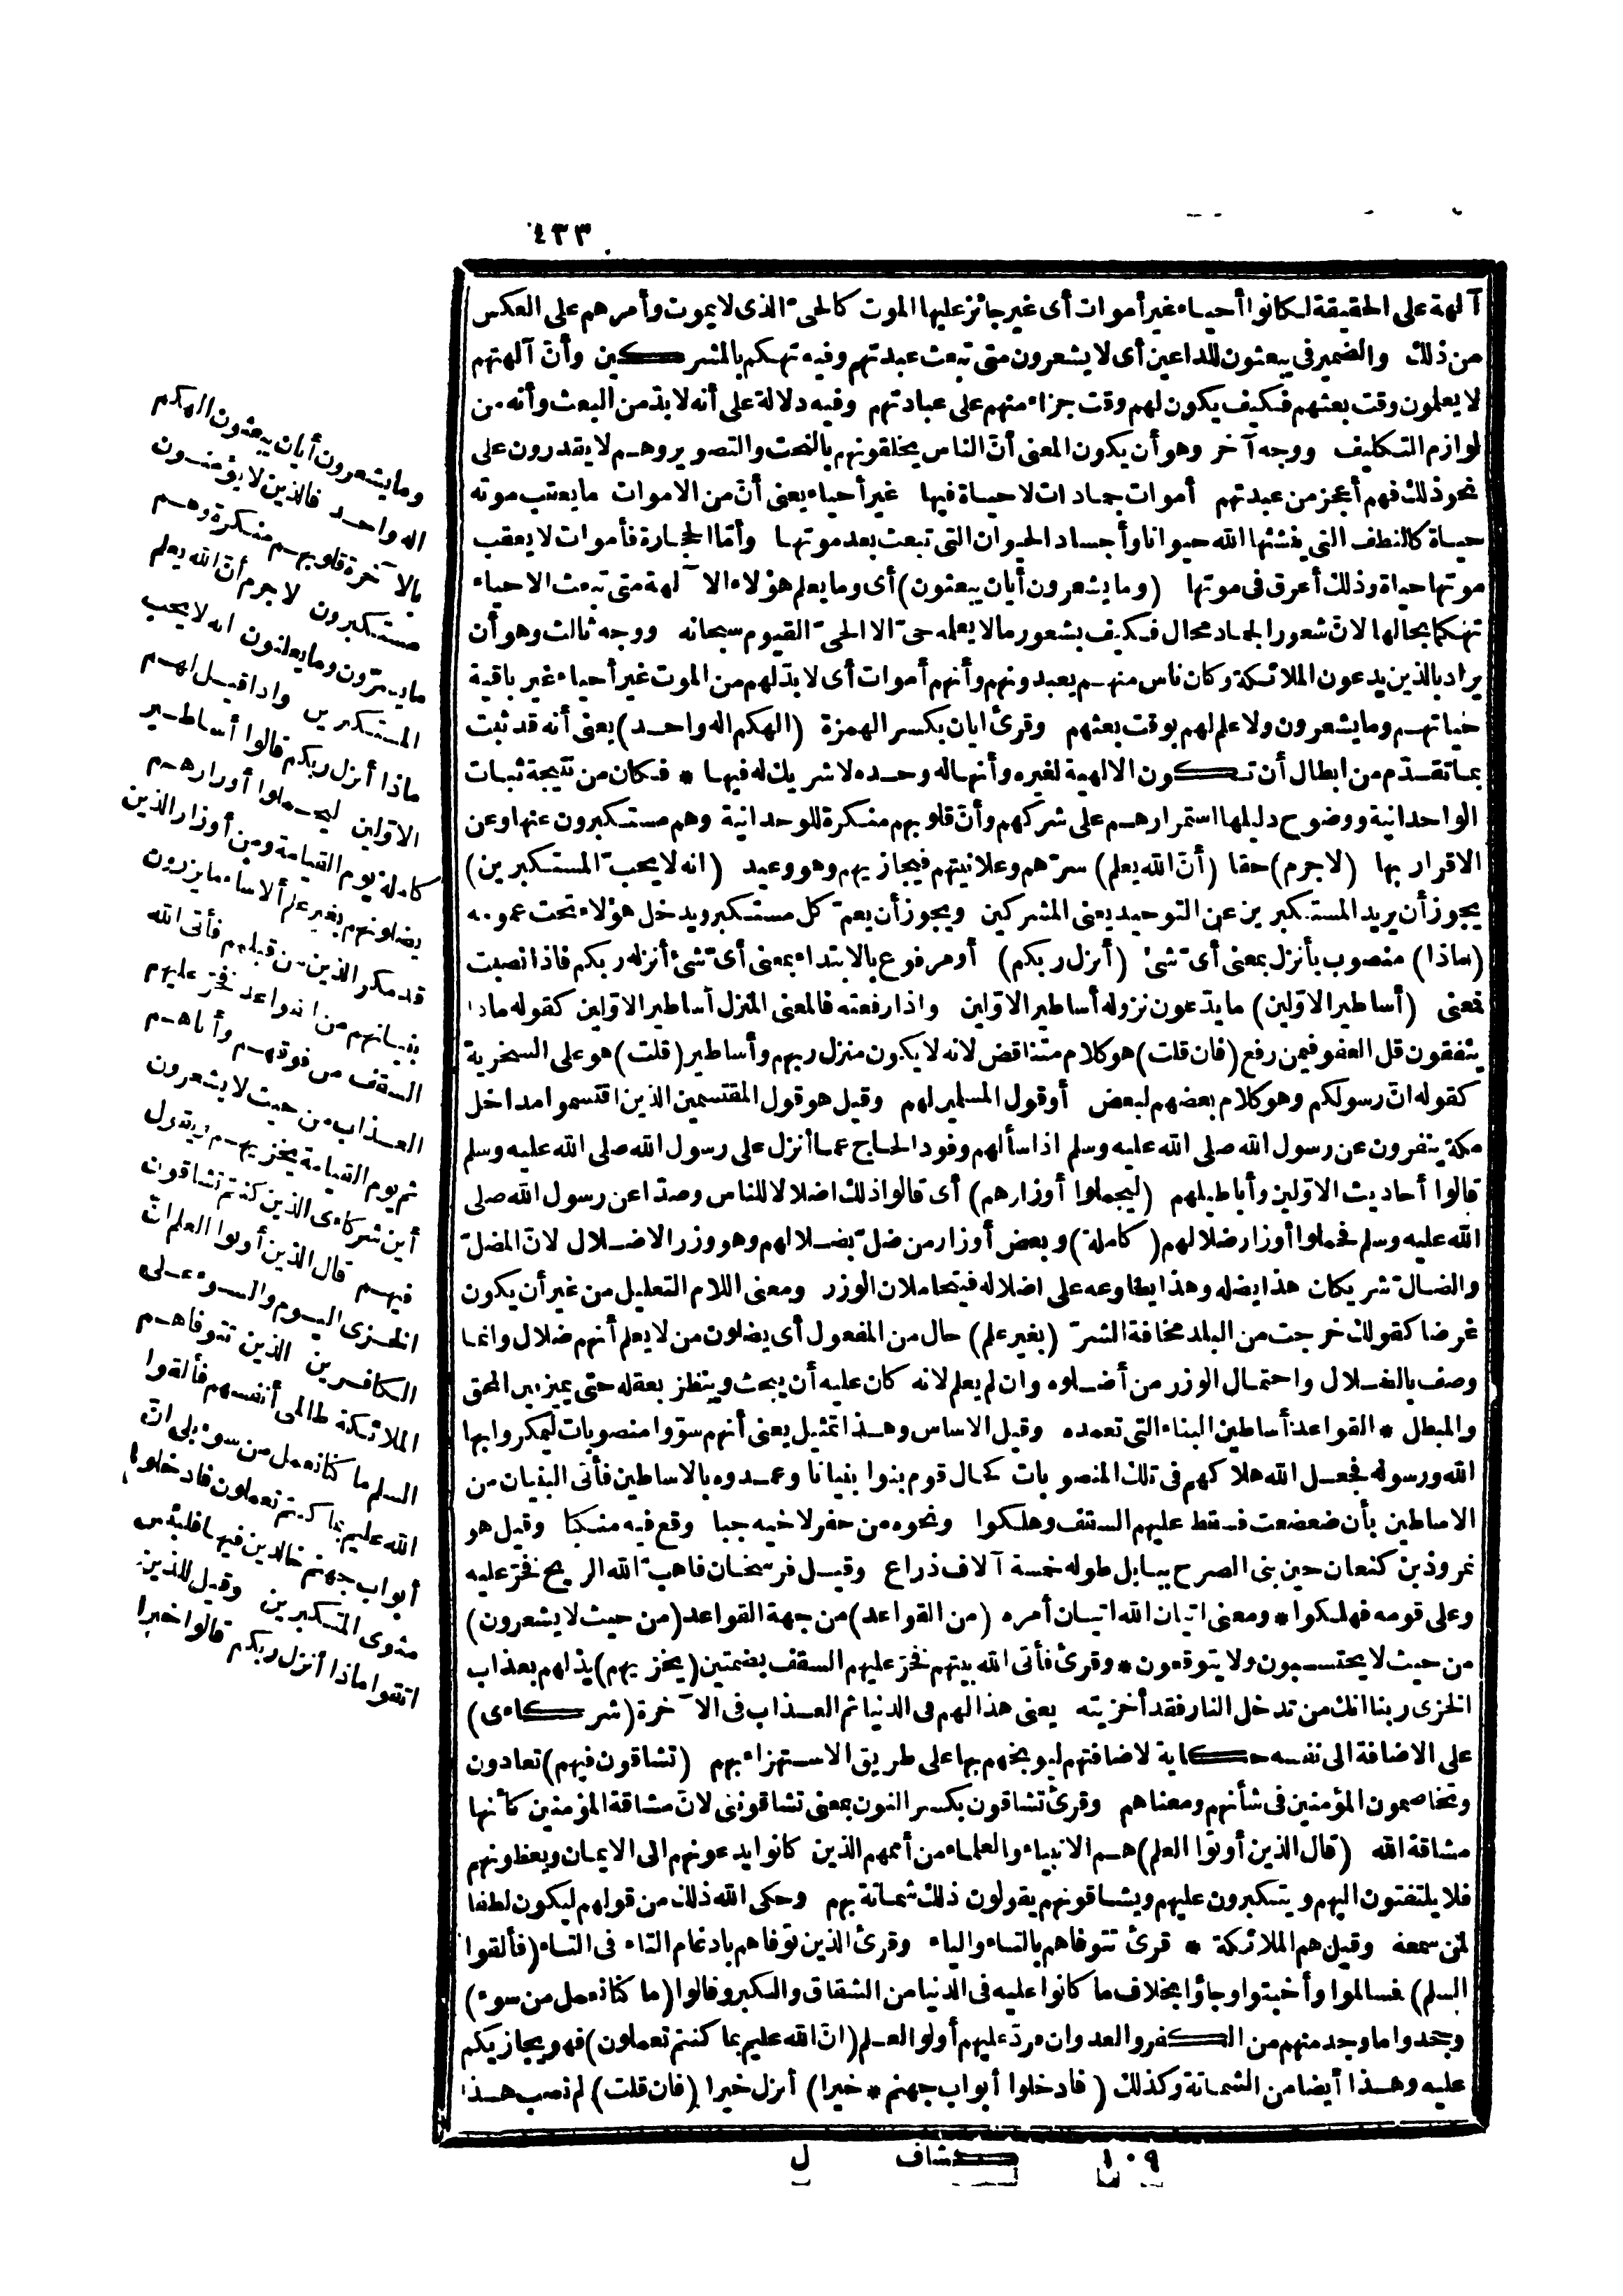 ٤٣٣
آلهة على الحقيقة لكانوا أحياء غير أموات أى غير جائز عليها الموت كالحىّ الذى لا يموت وأمرهم على العكس
من ذلك والضمير فى يبعثون للداعين أى لا يشعرون متى تبعث عبدتهم وفيه تهكم بالمشركين وأنّ آلهتهم
لا يعلمون وقت بعثهم فكيف يكون لهم وقت جزاء منهم على عبادتهم وفيه دلالة على أنه لا بدّ من البعث وأنه من
لوازم التكليف ووجه آخر وهو أن يكون المعنى أنّ الناس يخلقونهم بالنحت والتصوير وهم لا يقدرون على
نحو ذلك فهم أعجز من عبدتهم أموات جمادات لا حياة فيها غير أحياء يعنى أنّ من الاموات ما يعقب موته
حياة كالنطف التى ينشئها الله حيوانا وأجساد الحيوان التى تبعث بعد موتها وأمّا الحجارة فأموات لا يعقب
موتها حياة وذلك أعرق فى موتها (وما يشعرون أيان يبعثون) أى وما يعلم هؤلاء الآلهة متى تبعث الاحياء
تهكما بحالها لانّ شعور الجماد محال فكيف بشعور ما لا يعله حىّ الا الحىّ القيوم سبحانه ووجه ثالث وهو أن
يراد بالذين يدعون الملائكة وكان ناس منهم يعبدونهم وأنهم أموات أى لا بدّ لهم من الموت غير أحياء غير باقية
حياتهم وما يشعرون ولا علم لهم بوقت بعثهم وقرئ ايان بكسر الهمزة (الهكم اله واحد) يعنى أنه قد ثبت
بما تقدّم من ابطال أن تكون الالهية لغيره وأنها له وحده لا شريك له فيها * فكان من نتيجة ثبات
الواحدانية ووضوح دليلها استمرارهم على شركهم وأنّ قلوبهم منكرة للوحدانية وهم مستكبرون عنها وعن
الاقرار بها (لا جرم) حقا (أنّ الله يعلم) سرّهم وعلانيتهم فيجازيهم وهو وعيد (انه لا يحبّ المستكبرين)
يجوز أن يريد المستكبرين عن التوحيد يعنى المشركين ويجوز أن يعمّ كل مستكبر ويدخل هؤلاء تحت عمومه
(ماذا) منصوب بأنزل بمعنى أىّ شئ (أنزل ربكم) أو مرفوع بالابتداء بمعنى أىّ شئ أنزله ربكم فاذا نصبت
فمعنى (أساطير الاوّلين) ما يدّعون نزوله أساطير الاوّلين واذا رفعته فالمعنى المنزل أساطير الاوّلين كقوله ماذا
ينفقون قل العفو فيمن رفع (فان قلت) هو كلام متناقض لانه لا يكون منزل ربهم وأساطير (قلت) هو على السخرية
كقوله انّ رسولكم وهو كلام بعضهم لبعض أو قول المسلمين لهم وقيل هو قول المقتسمين الذين اقتسموا مداخل
مكة ينفرون عن رسول الله صلى الله عليه وسلم اذا سألهم وفود الحاج عما أنزل على رسول الله صلى الله عليه وسلم
قالوا أحاديث الاوّلين وأباطيلهم (ليحملوا أوزارهم) أى قالوا ذلك اضلالا للناس وصدّا عن رسول الله صلى
الله عليه وسلم فحملوا أوزار ضلالهم (كاملة) وبعض أوزار من ضلّ بضلالهم وهو وزر الاضلال لانّ المضلّ
والضالّ شريكان هذا يضله وهذا يطاوعه على اضلاله فيتحاملان الوزر ومعنى اللام التعليل من غير أن يكون
غرضا كقولك خرجت من البلد مخافة الشرّ (بغير علم) حال من المفعول أى يضلون من لا يعلم أنهم ضلال وانما
وصف بالضلال واحتمال الوزر من أضلوه وان لم يعلم لانه كان عليه أن يبحث وينظر بعقله حتى يميز بين المحق
والمبطل * القواعد أساطين البناء التى تعمده وقيل الاساس وهذا تمثيل يعنى أنهم سوّوا منصوبات ليمكروا بها
الله ورسوله فجعل الله هلاكهم فى تلك المنصوبات كحال قوم بنوا بنيانا وعمدوه بالاساطين فأتى البنيان من
الاساطين بأن ضعضعت فسقط عليهم السقف وهلكوا ونحوه من حفر لاخيه جبا وقع فيه منكبا وقيل هو
نمروذ بن كنعان حين بنى الصرح ببابل طوله خمسة آلاف ذراع وقيل فرسخان فاهبّ الله الريح فخرّ عليه
وعلى قومه فهلكوا * ومعنى اتيان الله اتيان أمره (من القواعد) من جهة القواعد (من حيث لا يشعرون)
من حيث لا يحتسبون ولا يتوقعون * وقرئ فأتى الله بيتهم فخرّ عليهم السقف بضمتين (يخزيهم) يذلهم بعذاب
الخزى ربنا انك من تدخل النار فقد أخزيته يعنى هذا لهم فى الدنيا ثم العذاب فى الآخرة (شركاءى)
على الاضافة الى نفسه حكاية لاضافتهم ليوبخهم بها على طريق الاستهزاء بهم (تشاقون فيهم) تعادون
وتخاصمون المؤمنين فى شأنهم ومعناهم وقرئ تشاقون بكسر النون بمعنى تشاقوننى لانّ مشاقة المؤمنين كأنها
مشاقة الله (قال الذين أوتوا العلم) هم الانبياء والعلماء من أممهم الذين كانوا يدعونهم الى الايمان ويعظونهم
فلا يلتفتون اليهم ويتكبرون عليهم ويشاقونهم يقولون ذلك شماتة بهم وحكى الله ذلك من قولهم ليكون لطفا
لمن سمعه وقيل هم الملائكة * قرئ تتوفاهم بالتاء والياء وقرئ الذين توّفاهم بادغام التاء فى التاء (فألقوا
السلم) فسالموا وأخبتوا وجاؤا بخلاف ما كانوا عليه فى الدنيا من الشقاق والكبر وقالوا (ما كنا نعمل من سوء)
وجحدوا ما وجد منهم من الكفر والعدوان فردّ عليهم أولو العلم (انّ الله عليم بما كنتم تعملون) فهو يجازيكم
عليه وهذا أيضا من الشماتة وكذلك (فادخلوا أبواب جهنم * خيرا) أنزل خيرا (فان قلت) لم نصب هذا
وما يشعرون أيان يبعثون الهكم
اله واحد فالذين لا يؤمنون
بالآخرة قلوبهم منكرة وهم
مستكبرون لا جرم أنّ الله يعلم
ما يسرّون وما يعلنون انه لا يحب
المستكبرين واذا قيل لهم
ماذا أنزل ربكم قالوا أساطير
الاوّلين ليحملوا أوزارهم
كاملة يوم القيامة ومن أوزار الذين
يضلونهم بغير علم ألا ساء ما يزرون
قد مكر الذين من قبلهم فأتى الله
بنيانهم من القواعد فخرّ عليهم
السقف من فوقهم وأتاهم
العذاب من حيث لا يشعرون
ثم يوم القيامة يخزيهم ويقول
أين شركاءى الذين كنتم تشاقون
فيهم قال الذين أوتوا العلم انّ
الخزى اليوم والسوء على
الكافرين الذين تتوفاهم
الملائكة ظالمى أنفسهم فألقوا
السلم ما كنا نعمل من سوء بلى انّ
الله عليم بما كنتم تعملون فادخلوا
أبواب جهنم خالدين فيها فلبئس
مثوى المتكبرين وقيل للذين
اتقوا ماذا أنزل ربكم قالوا خيرا
١٠٩ كشاف ل